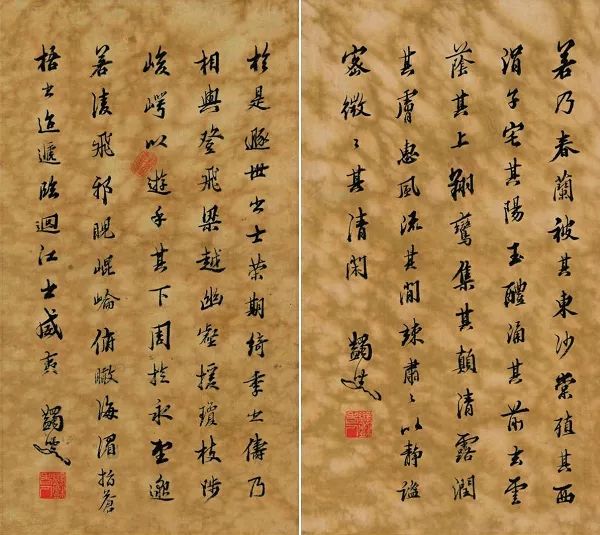 若乃春蘭被其東沙棠殖其西
涓子宅其陽玉醴涌其前玄雲
蔭其上翔鸞集其顛清露潤
其膚惠風流其間竦肅〻以靜謐
密微〻其清閑 蠲叟
於是遯世之士榮期綺季之儔乃
相與登飛梁越幽壑援瓊枝陟
峻崿以遊乎其下周旋永望邈
若淩飛邪睨崐崘俯瞰海湄指蒼
梧之迢遞臨迴江之威夷 蠲叟